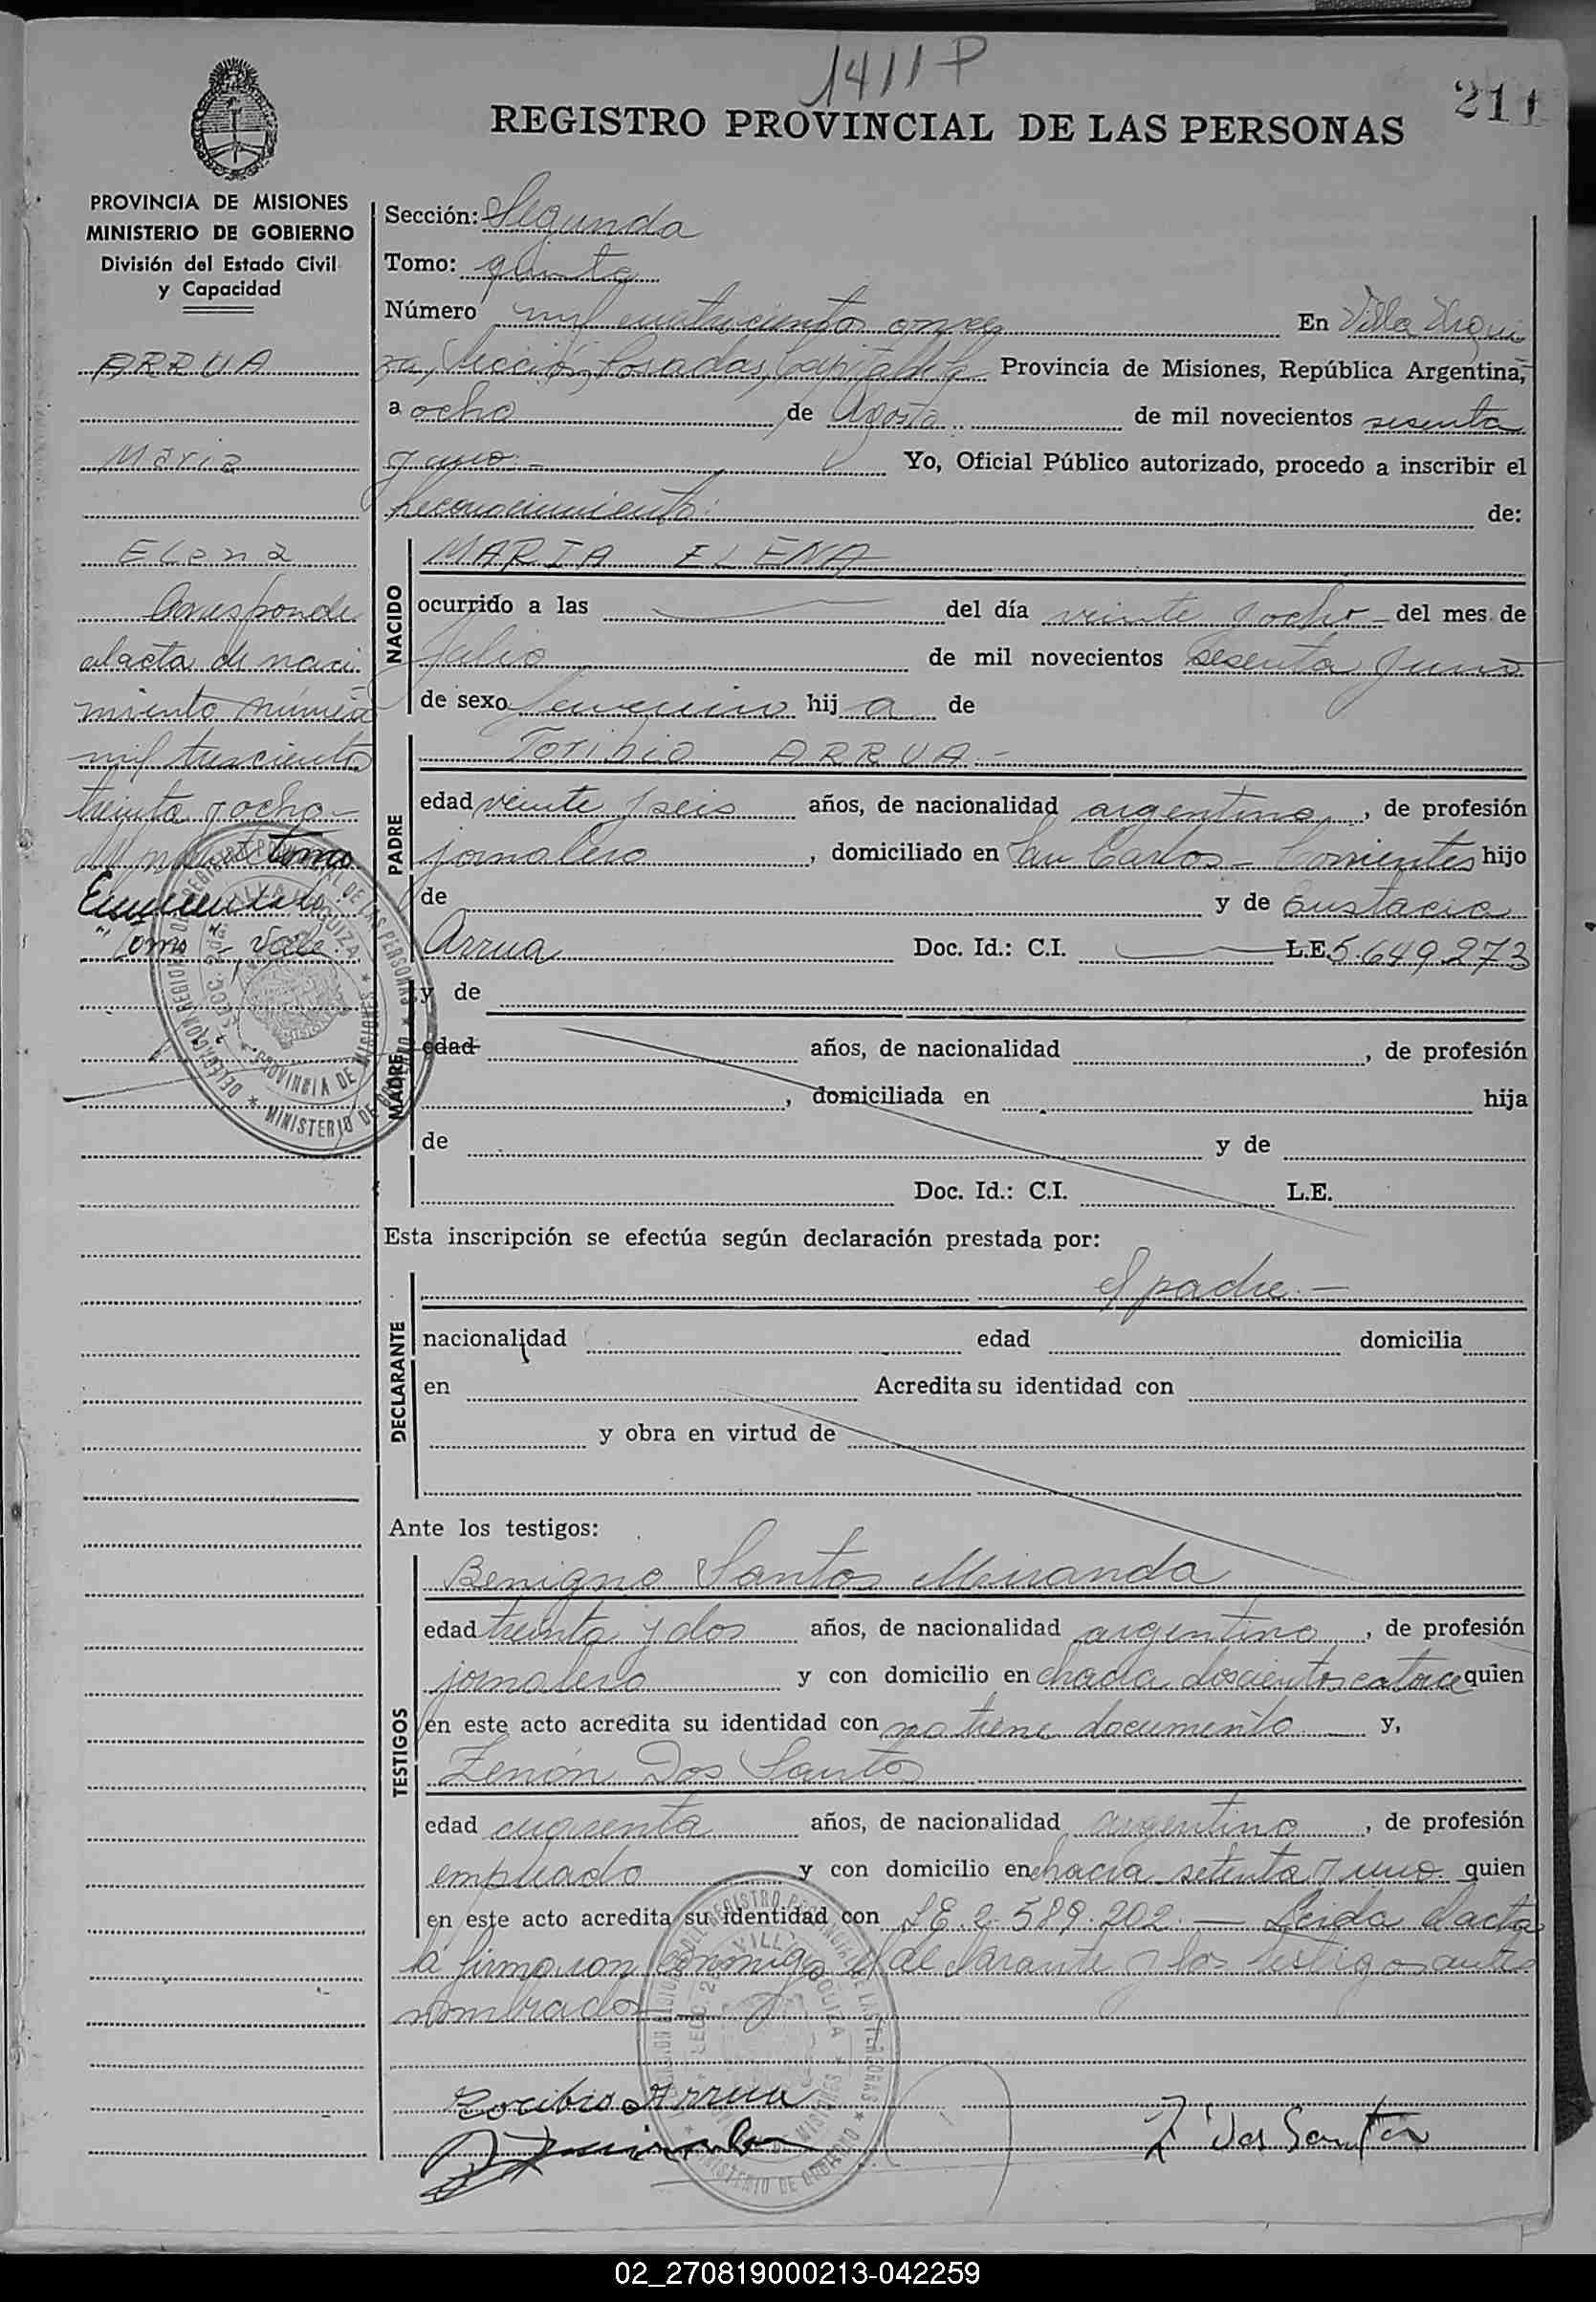 1411 P
211
REGISTRO PROVINCIAL DE LAS PERSONAS
PROVINCIA DE MISIONES
MINISTERIO DE GOBIERNO
División del Estado Civil
y Capacidad
ARRUA
Maria
Elena
Corresponde
al acta de naci
miento número
mil trescientos
treinta y ocho -
tomo
Enmendado
"tomo" - Vale.
Sección: Segunda
Tomo: quinto
Número mil cuatrocientos once En Villa Urqui
za, Sección, Posadas, Capital de la Provincia de Misiones, República Argentina,
a ocho de Agosto de mil novecientos sesenta
y uno - Yo, Oficial Público autorizado, procedo a inscribir el
Reconocimiento de:
NACIDO
MARIA ELENA
ocurrido a las del día veinte y ocho - del mes de
Julio de mil novecientos sesenta y uno
de sexo femenino hij a de
PADRE
Toribio ARRUA -
edad veinte y seis años, de nacionalidad argentino, de profesión
jornalero, domiciliado en San Carlos - Corrientes hijo
de y de Eustacia
Arrua Doc. Id.: C.I. L.E. 5.649.273
MADRE
y de
edad años, de nacionalidad , de profesión
, domiciliada en hija
de y de
Doc. Id.: C.I. L.E.
Esta inscripción se efectúa según declaración prestada por:
DECLARANTE
el padre. -
nacionalidad edad domicilia
en Acredita su identidad con
y obra en virtud de
Ante los testigos:
TESTIGOS
Benigno Santos Miranda
edad treinta y dos años, de nacionalidad argentino, de profesión
jornalero y con domicilio en chacra doscientos catorce quien
en este acto acredita su identidad con no tiene documento y,
Zenón Dos Santos
edad cuarenta años, de nacionalidad argentino, de profesión
empleado y con domicilio en chacra setenta y uno quien
en este acto acredita su identidad con L.E. 2.589.202. - Leida el acta
la firmaron conmigo el declarante y los testigos antes
nombrados
Toribio Arrua
Z. Dos Santos
02_270819000213-042259